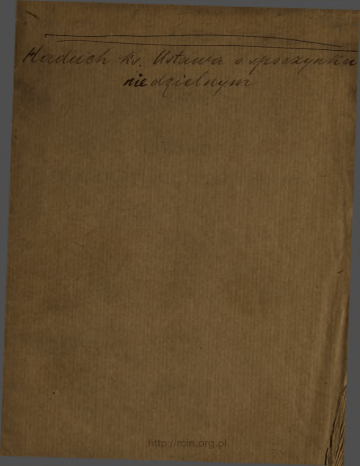 Ks. Ustawa o spoczynku
niedzielnym
http://rcin.org.pl